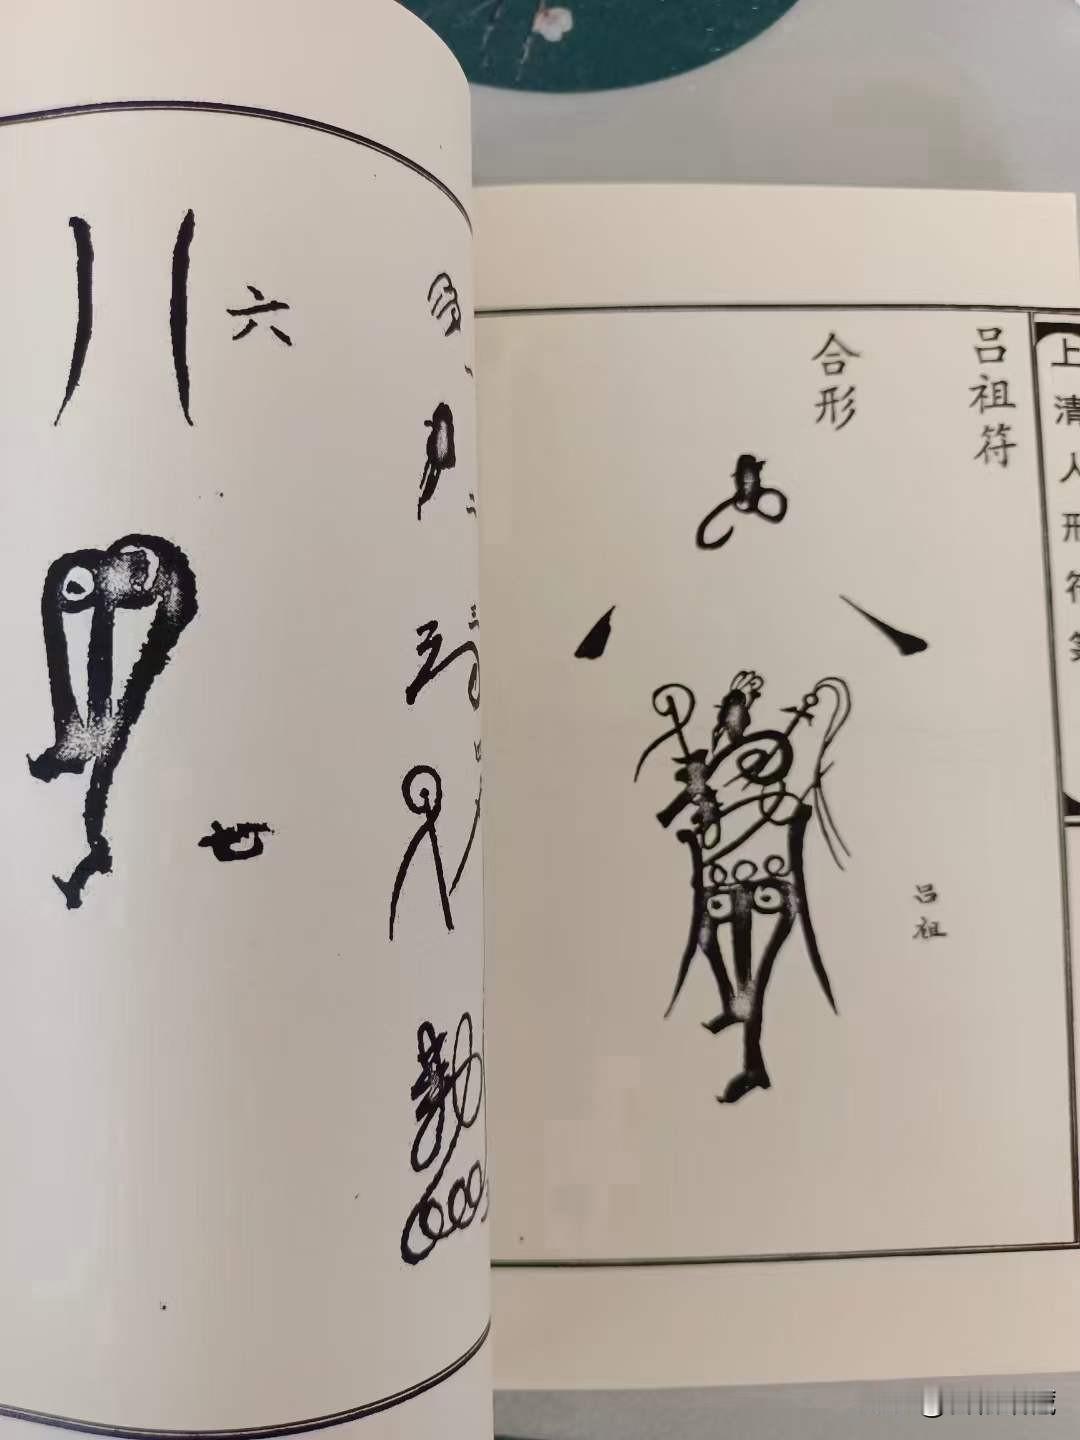 上清人形符箓
吕祖符
合形
吕祖
一
二
三
四
六
七